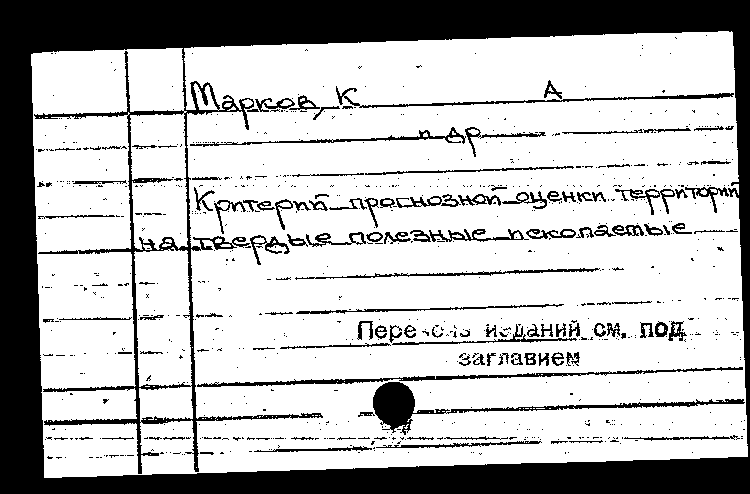 Марков, К А
и др
Критерии прогнозной оценки территорий
на твердые полезные ископаемые
Перечень изданий см. под
заглавием